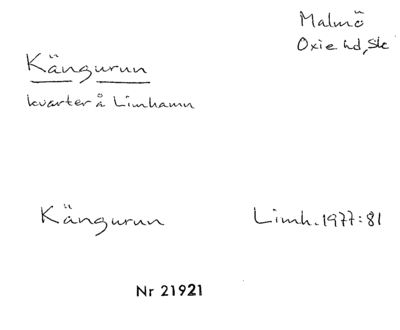 Malmö
Oxie hd, Sk
Kängurun
kvarter å Limhamn
Kängurun Limh. 1977:81
Nr 21921